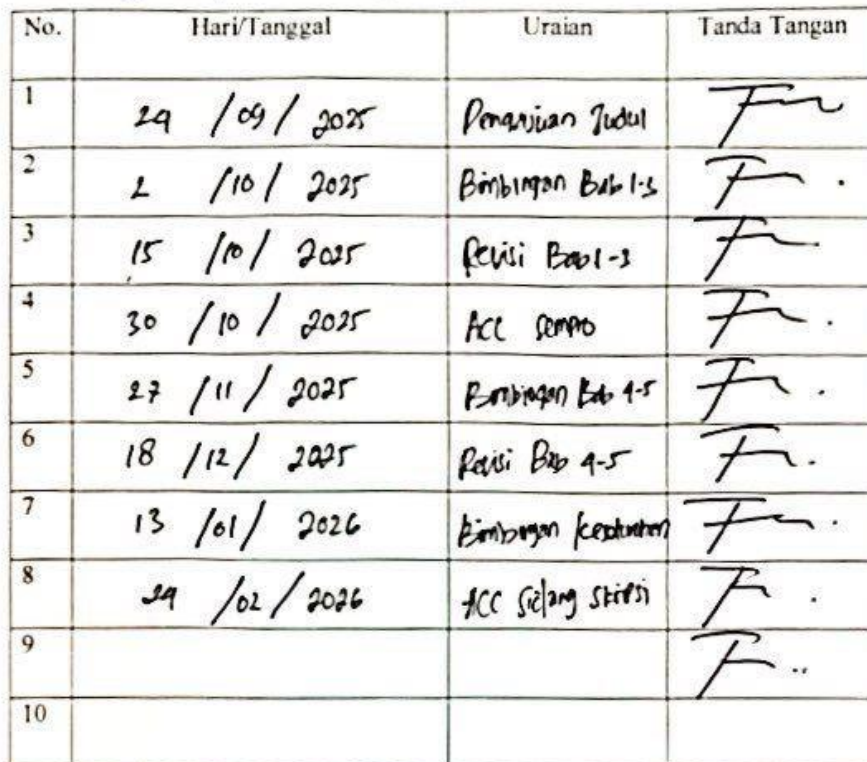 No. Hari/Tanggal Uraian Tanda Tangan
1 24 /09/ 2025 Pengajuan Judul
2 2 /10/ 2025 Bimbingan Bab 1-3
3 15 /10/ 2025 Revisi Bab 1-3
4 30 /10/ 2025 ACC Sempro
5 27 /11/ 2025 Bimbingan Bab 4-5
6 18 /12/ 2025 Revisi Bab 4-5
7 13 /01/ 2026 Bimbingan keseluruhan
8 24 /02/ 2026 ACC Sidang Skripsi
9
10